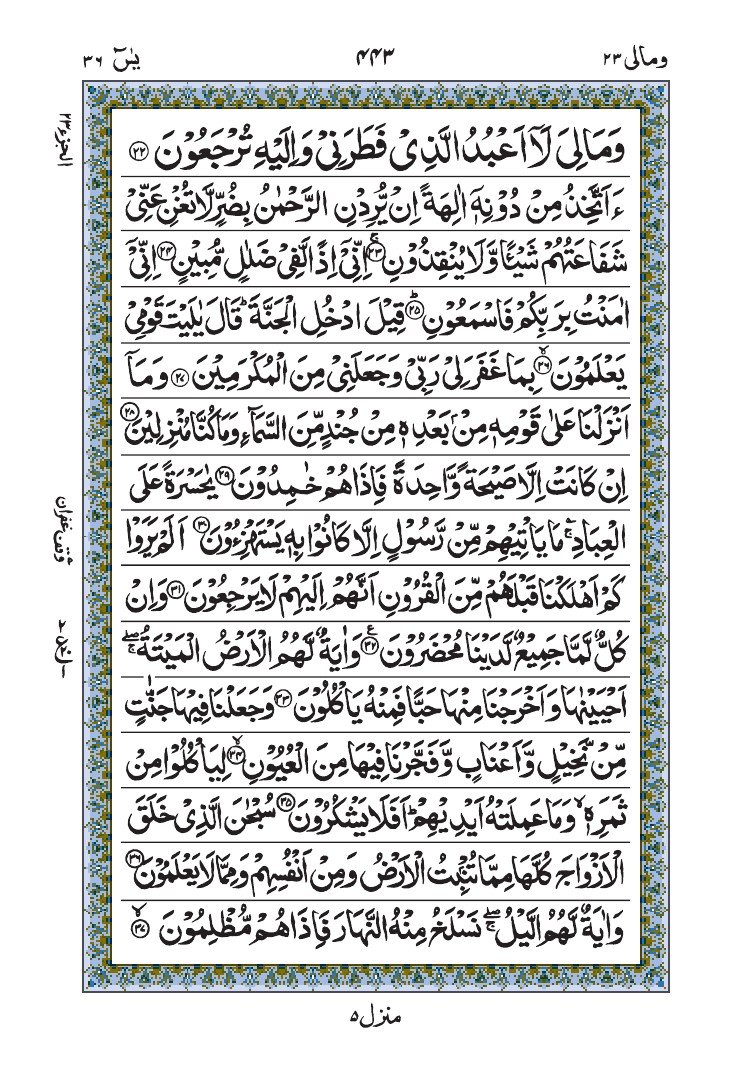 ومالی ۲۳
۴۴۳
یٰسٓ ۳۶
الجزء ۲۳
وَمَا لِیَ لَاۤ اَعۡبُدُ الَّذِیۡ فَطَرَنِیۡ وَاِلَیۡهِ تُرۡجَعُوۡنَ ﴿۲۲﴾
ءَاَتَّخِذُ مِنۡ دُوۡنِهٖۤ اٰلِهَةً اِنۡ یُّرِدۡنِ الرَّحۡمٰنُ بِضُرٍّ لَّا تُغۡنِ عَنِّیۡ
شَفَاعَتُهُمۡ شَیۡـًٔا وَّلَا یُنۡقِذُوۡنِ ﴿۲۳﴾ۚ اِنِّیۡۤ اِذًا لَّفِیۡ ضَلٰلٍ مُّبِیۡنٍ ﴿۲۴﴾ اِنِّیۡۤ
اٰمَنۡتُ بِرَبِّكُمۡ فَاسۡمَعُوۡنِ ﴿۲۵﴾ؕ قِیۡلَ ادۡخُلِ الۡجَنَّةَ ؕ قَالَ یٰلَیۡتَ قَوۡمِیۡ
یَعۡلَمُوۡنَ ﴿۲۶﴾ۙ بِمَا غَفَرَ لِیۡ رَبِّیۡ وَجَعَلَنِیۡ مِنَ الۡمُكۡرَمِیۡنَ ﴿۲۷﴾ وَمَاۤ
اَنۡزَلۡنَا عَلٰی قَوۡمِهٖ مِنۡۢ بَعۡدِهٖ مِنۡ جُنۡدٍ مِّنَ السَّمَآءِ وَمَا كُنَّا مُنۡزِلِیۡنَ ﴿۲۸﴾
اِنۡ كَانَتۡ اِلَّا صَیۡحَةً وَّاحِدَةً فَاِذَا هُمۡ خٰمِدُوۡنَ ﴿۲۹﴾ یٰحَسۡرَةً عَلَی
الۡعِبَادِ ۚۚ مَا یَاۡتِیۡهِمۡ مِّنۡ رَّسُوۡلٍ اِلَّا كَانُوۡا بِهٖ یَسۡتَهۡزِءُوۡنَ ﴿۳۰﴾ اَلَمۡ یَرَوۡا
وقف غفران
كَمۡ اَهۡلَكۡنَا قَبۡلَهُمۡ مِّنَ الۡقُرُوۡنِ اَنَّهُمۡ اِلَیۡهِمۡ لَا یَرۡجِعُوۡنَ ﴿۳۱﴾ وَاِنۡ
كُلٌّ لَّمَّا جَمِیۡعٌ لَّدَیۡنَا مُحۡضَرُوۡنَ ﴿۳۲﴾ وَاٰیَةٌ لَّهُمُ الۡاَرۡضُ الۡمَیۡتَةُ ۖۚ
اَحۡیَیۡنٰهَا وَاَخۡرَجۡنَا مِنۡهَا حَبًّا فَمِنۡهُ یَاۡكُلُوۡنَ ﴿۳۳﴾ وَجَعَلۡنَا فِیۡهَا جَنّٰتٍ
مِّنۡ نَّخِیۡلٍ وَّاَعۡنَابٍ وَّفَجَّرۡنَا فِیۡهَا مِنَ الۡعُیُوۡنِ ﴿۳۴﴾ۙ لِیَاۡكُلُوۡا مِنۡ
ثَمَرِهٖ ۙ وَمَا عَمِلَتۡهُ اَیۡدِیۡهِمۡ ؕ اَفَلَا یَشۡكُرُوۡنَ ﴿۳۵﴾ سُبۡحٰنَ الَّذِیۡ خَلَقَ
الۡاَزۡوَاجَ كُلَّهَا مِمَّا تُنۡۢبِتُ الۡاَرۡضُ وَمِنۡ اَنۡفُسِهِمۡ وَمِمَّا لَا یَعۡلَمُوۡنَ ﴿۳۶﴾
وَاٰیَةٌ لَّهُمُ الَّیۡلُ ۖۚ نَسۡلَخُ مِنۡهُ النَّهَارَ فَاِذَا هُمۡ مُّظۡلِمُوۡنَ ﴿۳۷﴾ۙ
منزل ۵